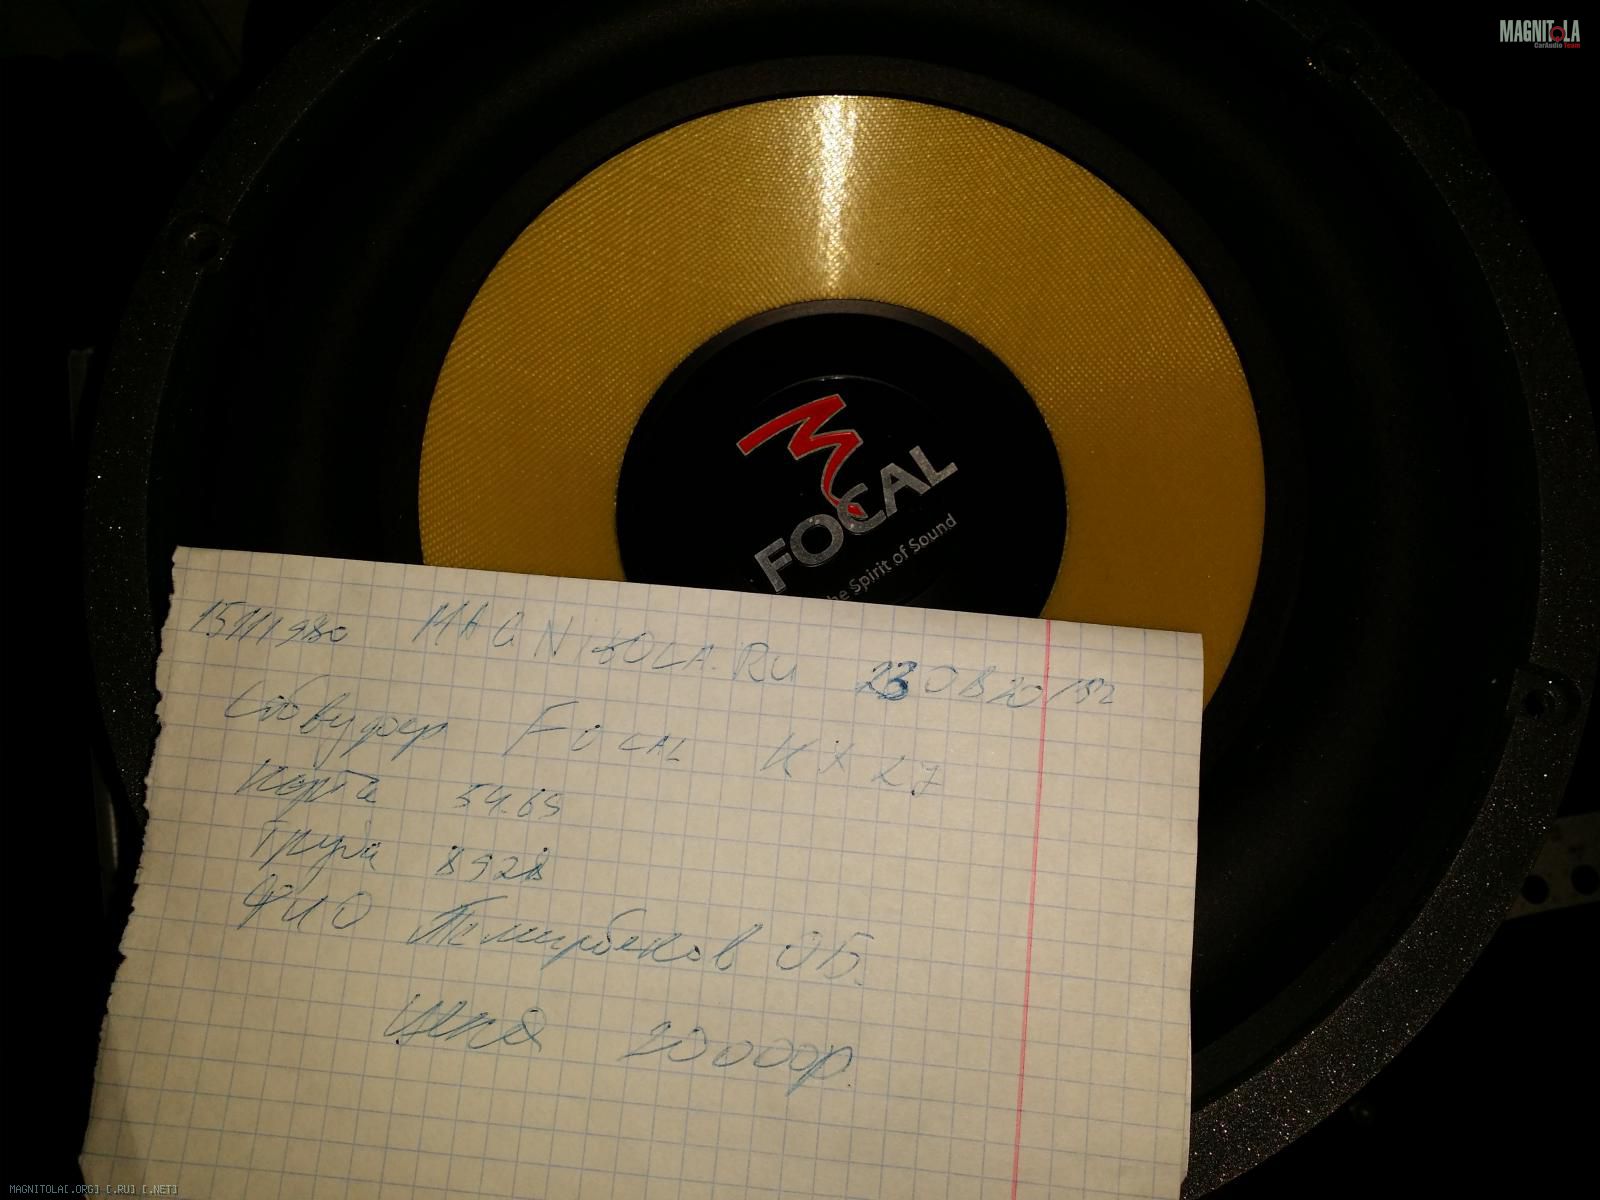 MAGNITOLA
CarAudio Team
FOCAL
the Spirit of Sound
15111980 MAGNitOLA.RU
Сабвуфер FOCAL KX 27
Карта 54.69
Труба 8928
ФИО ОБ.
Цена 20000р
MAGNITOLA[.ORG] [.RU] [.NET]